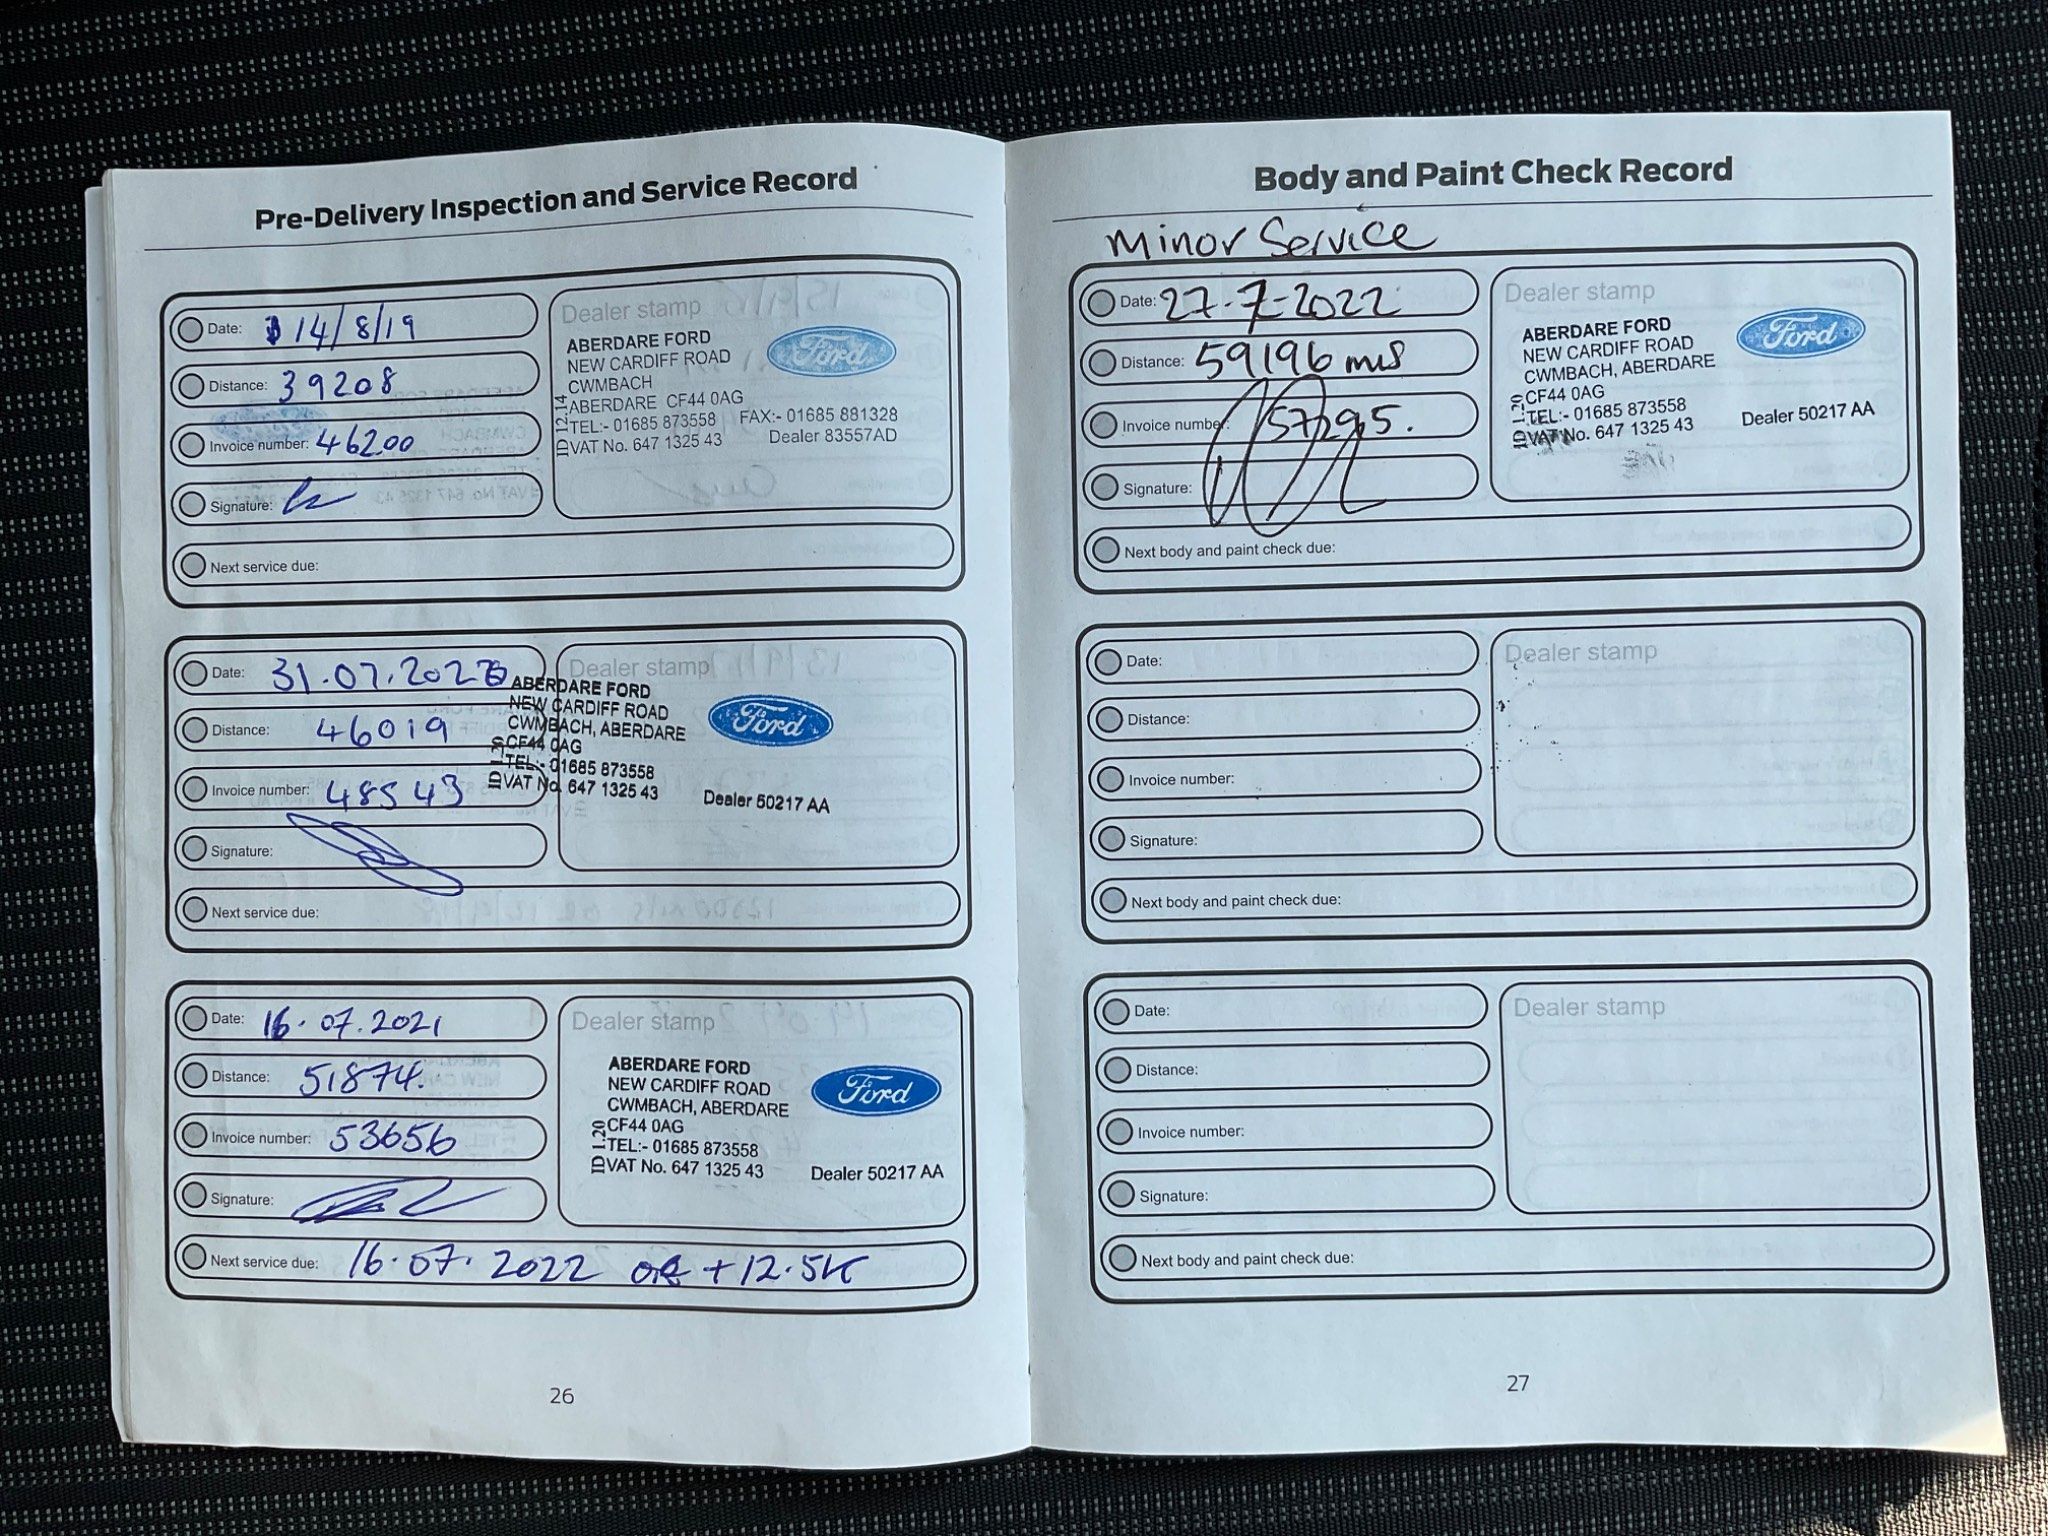 Pre-Delivery Inspection and Service Record
Date: 14/8/19
Distance: 39208
Invoice number: 46200
Signature:
Next service due:
Dealer stamp
ABERDARE FORD
NEW CARDIFF ROAD
CWMBACH
ABERDARE CF44 0AG
TEL:- 01685 873558 FAX:- 01685 881328
VAT No. 647 1325 43 Dealer 83557AD
ID 12.14
Ford
Date: 31.07.2020
Distance: 46019
Invoice number: 48543
Signature:
Next service due:
Dealer stamp
ABERDARE FORD
NEW CARDIFF ROAD
CWMBACH, ABERDARE
CF44 0AG
TEL:- 01685 873558
VAT No. 647 1325 43
Dealer 50217 AA
ID 1.20
Ford
Date: 16.07.2021
Distance: 51874.
Invoice number: 53656
Signature:
Next service due: 16.07.2022 or +12.5K
Dealer stamp
ABERDARE FORD
NEW CARDIFF ROAD
CWMBACH, ABERDARE
CF44 0AG
TEL:- 01685 873558
VAT No. 647 1325 43
Dealer 50217 AA
ID 1.20
Ford
26
Body and Paint Check Record
Minor Service
Date: 27-7-2022
Distance: 59196 mls
Invoice number: 57295.
Signature:
Next body and paint check due:
Dealer stamp
ABERDARE FORD
NEW CARDIFF ROAD
CWMBACH, ABERDARE
CF44 0AG
TEL:- 01685 873558
VAT No. 647 1325 43
Dealer 50217 AA
ID 1.20
Ford
Date:
Distance:
Invoice number:
Signature:
Next body and paint check due:
Dealer stamp
Date:
Distance:
Invoice number:
Signature:
Next body and paint check due:
Dealer stamp
27